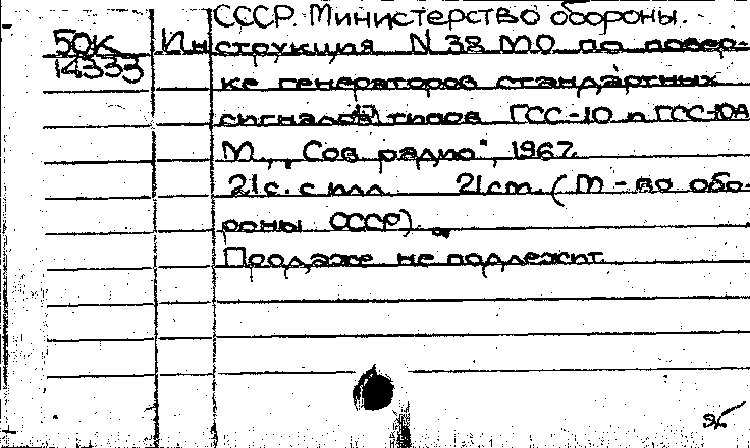 СССР. Министерство обороны.
50К Инструкция N 38 МО по повер-
14333
ке генераторов стандартных
сигналов типов ГСС-10 и ГСС-10А
М., "Сов радио", 1967.
21 с. с илл. 21 см. (М-во обо-
роны СССР).
Продаже не подлежит